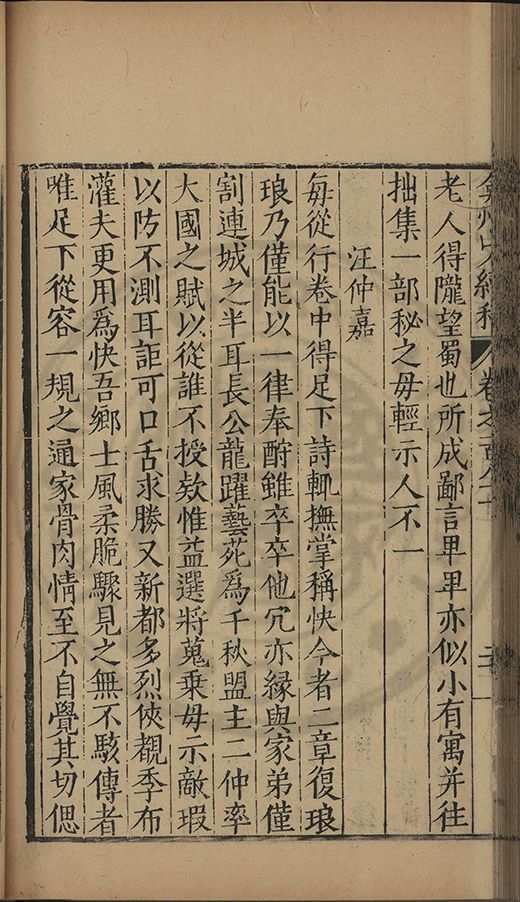 弇州山人續稿 卷之一百八十 二十一
老人得隴望蜀也所成鄙言卑卑亦似小有寓并往
拙集一部秘之毋輕示人不一
汪仲嘉
每從行卷中得足下詩輒撫掌稱快今者二章復琅
琅乃僅能以一律奉酧雖卒卒他冗亦緣與家弟僅
割連城之半耳長公龍躍藝苑爲千秋盟主二仲率
大國之賦以從誰不授欵惟益選將蒐乗毋示敵瑕
以防不測耳詎可口舌求勝又新都多烈俠覩季布
灌夫更用爲快吾鄉士風柔脆驟見之無不駭傳者
唯足下從容一規之通家骨肉情至不自覺其切偲